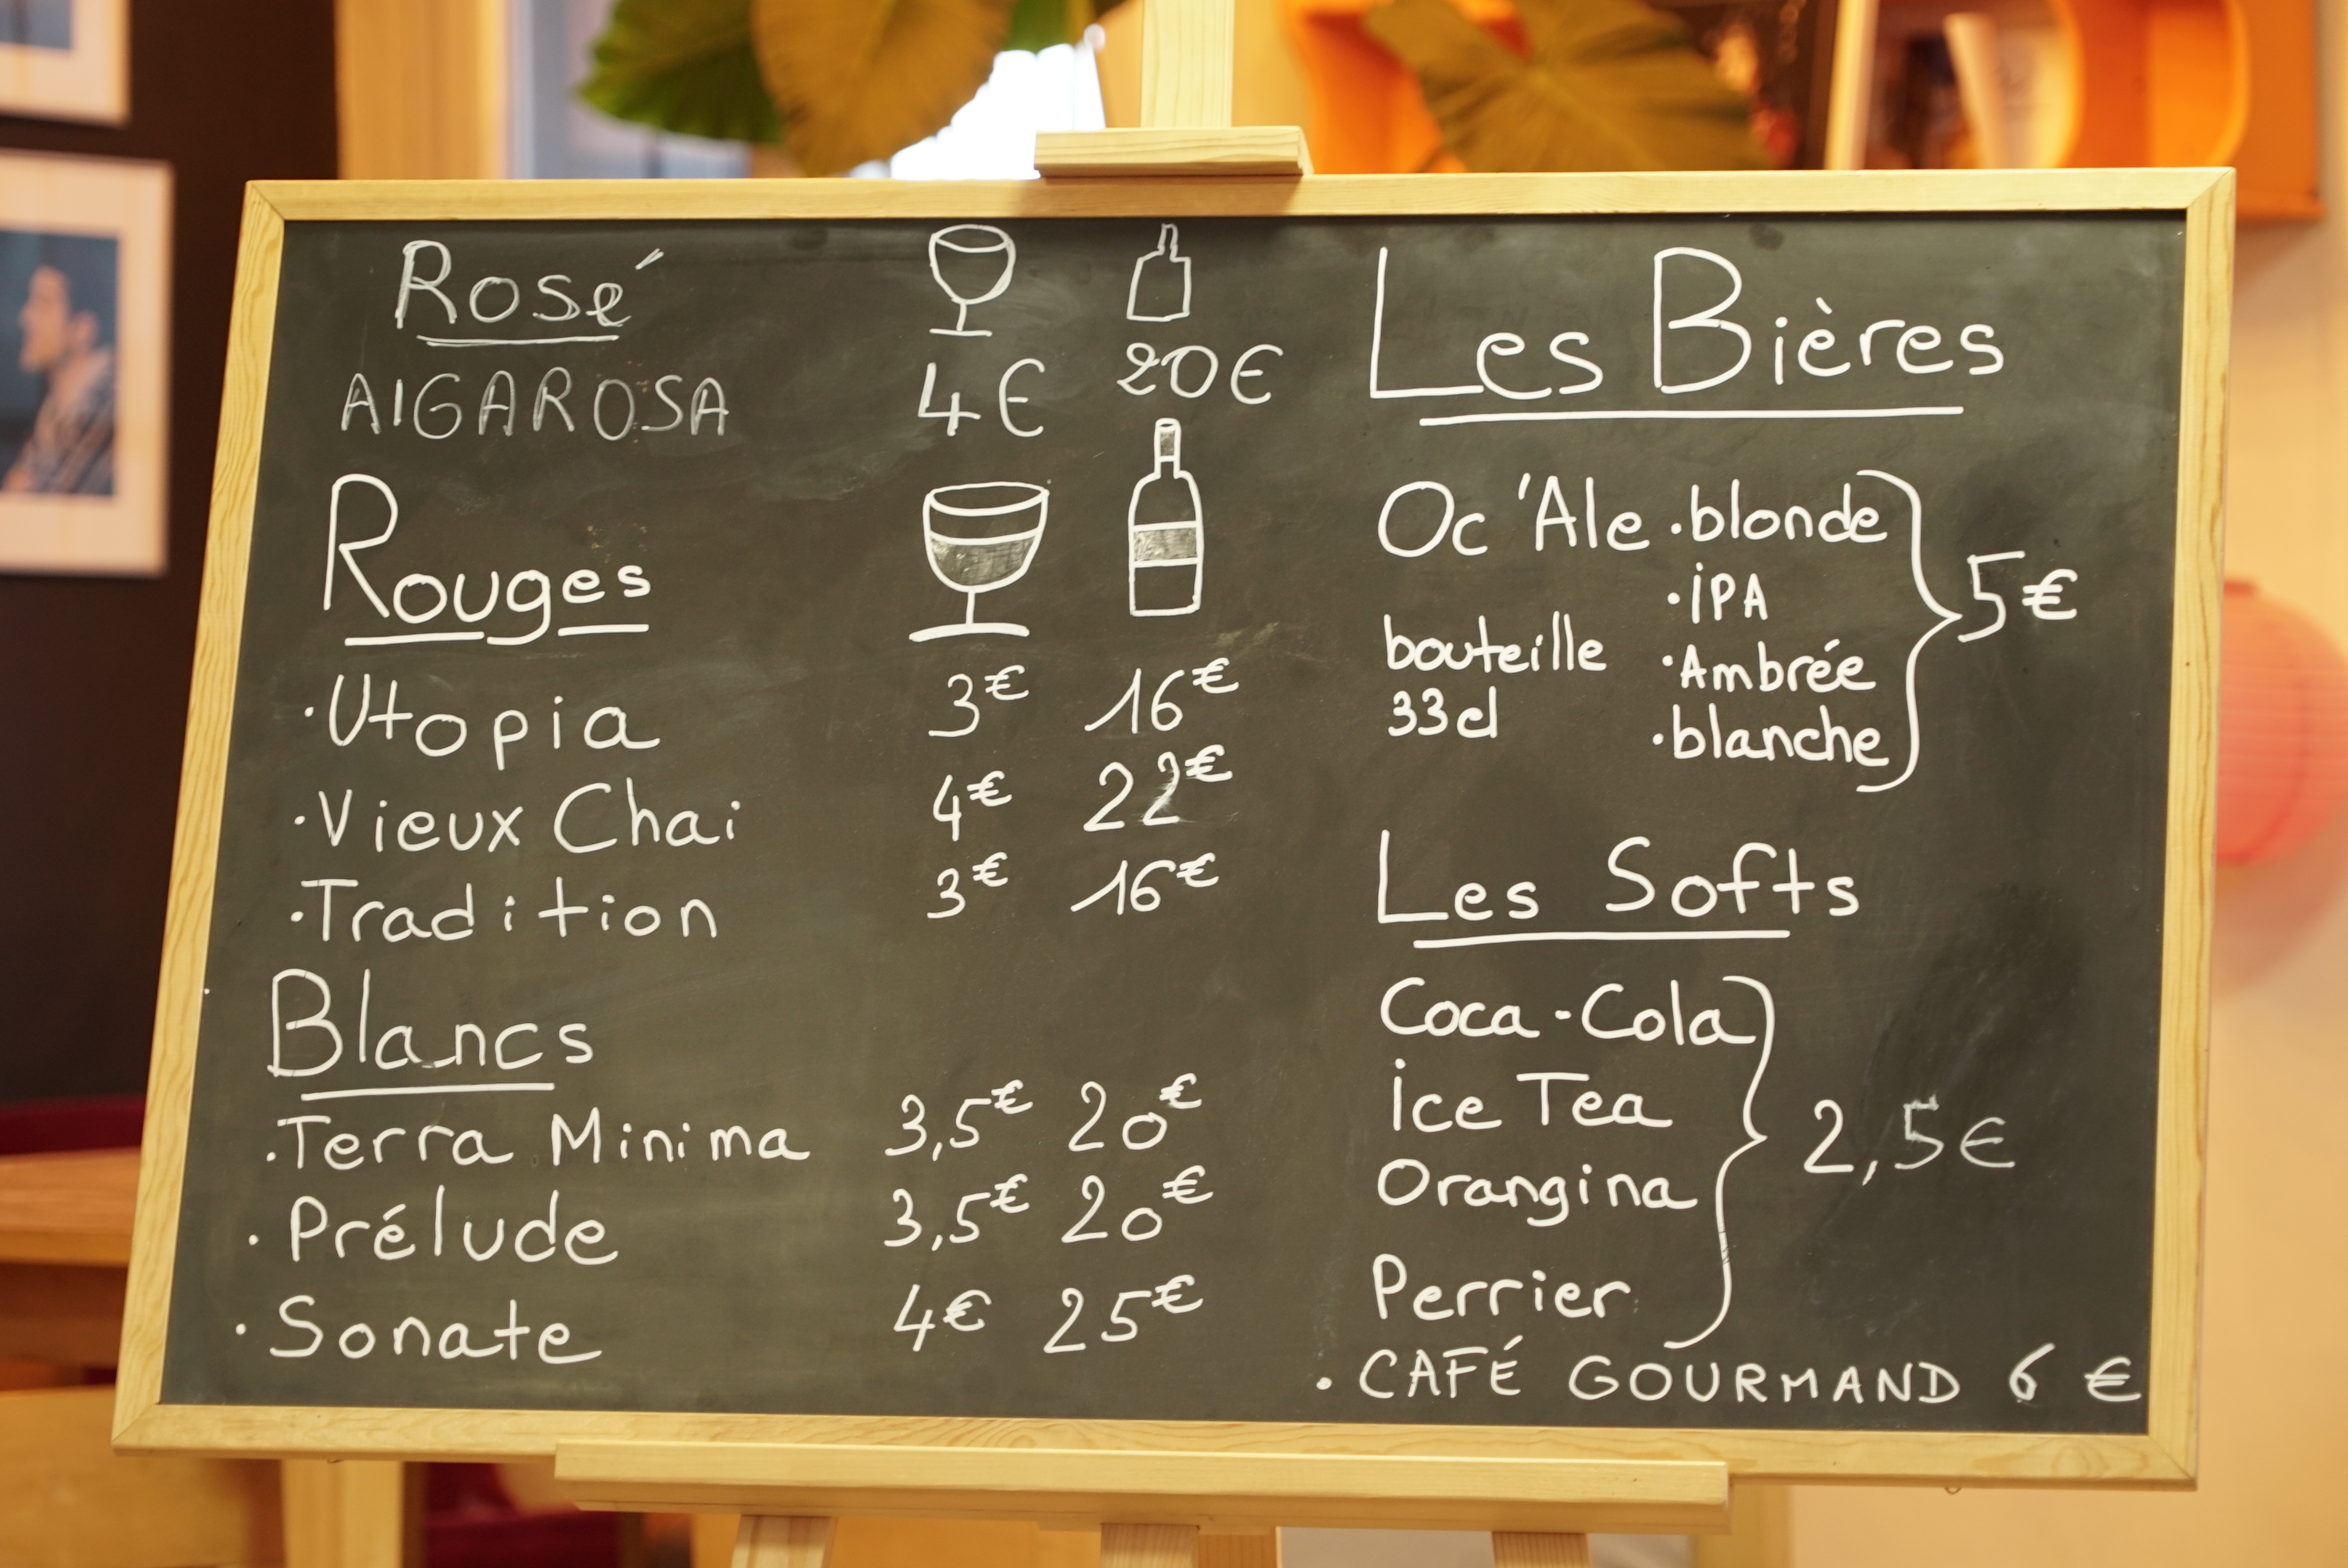 Rosé
AIGAROSA 4€ 20€
Rouges
·Utopia 3€ 16€
·Vieux Chai 4€ 22€
·Tradition 3€ 16€
Blancs
·Terra Minima 3,5€ 20€
·Prélude 3,5€ 20€
·Sonate 4€ 25€
Les Bières
Oc'Ale ·blonde
·iPA
bouteille ·Ambrée
33cl ·blanche
5€
Les Softs
Coca-Cola
ice Tea
Orangina
Perrier
2,5€
·CAFÉ GOURMAND 6 €